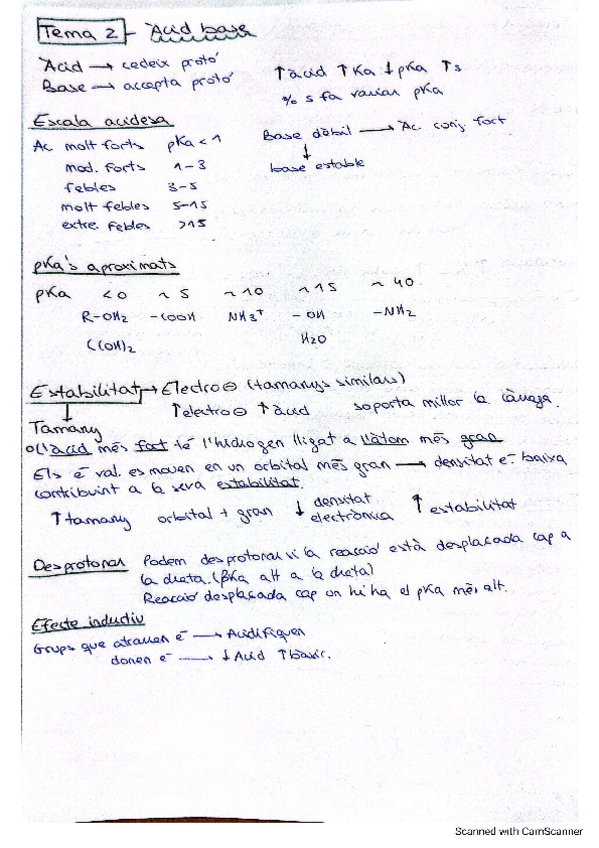 Tema 2 - Àcid base
Àcid → cedeix protó
Base → accepta protó
↑ àcid ↑ Ka ↓ pKa ↑ s
% s fa variar pKa
Escala acidesa
Ac. molt forts pKa < 1
mod. forts 1-3
febles 3-5
molt febles 5-15
extre. febles >15
Base dèbil → Ac. conj fort
↓
base estable
pKa's aproximats
pKa <0 ~5 ~10 ~15 ~40
R-OH2 -COOH NH3+ -OH -NH2
C(OH)2 H2O
Estabilitat → Electro⊖ (tamanys similars)
↑ electro⊖ ↑ àcid suporta millor la càrrega.
↓
Tamany
o L'àcid més fort té l'hidrogen lligat a l'àtom més gran
Els e- val. es mouen en un orbital més gran → densitat e- baixa
contribuint a la seva estabilitat.
↑ tamany orbital + gran ↓ densitat electrònica ↑ estabilitat
Desprotonar Podem desprotonar si la reacció està desplaçada cap a
la dreta. (pKa alt a la dreta)
Reacció desplaçada cap on hi ha el pKa més alt.
Efecte inductiu
Grups que atrauen e- → Acidifiquen
donen e- → ↓ Àcid ↑ bàsic.
Scanned with CamScanner